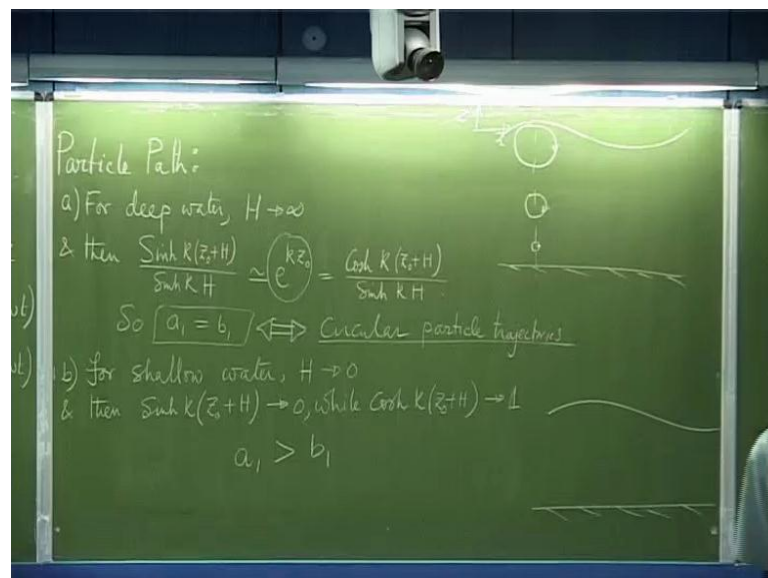 Particle Path:
a) For deep water, H→∞
& then Sinh k(z₀+H) / Sinh k H ≃ e^{kz₀} = Cosh k(z₀+H) / Sinh k H
So a₁ = b₁ ⟺ Circular particle trajectories
ωt)
ωt)
b) for shallow water, H→0
& then Sinh k(z₀+H)→0, while Cosh k(z₀+H)→1
a₁ > b₁